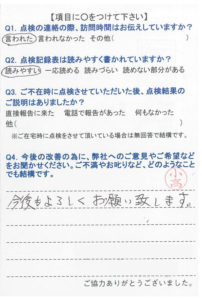 【項目に〇をつけて下さい】
Q1. 点検の連絡の際、訪問時間はお伝えしていますか?
言われた 言われなかった その他( )
Q2. 点検記録表は読みやすく書かれていますか?
読みやすい 一応読める 読みづらい 読めない部分がある
Q3. ご不在時に点検させていただいた後、点検結果の
ご説明はありましたか?
直接報告に来た 電話で報告があった 何もなかった
他( )
※ご在宅時に点検をさせて頂いている場合は無回答で結構です。
Q4. 今後の改善の為に、弊社へのご意見やご希望など
をお聞かせください。ご不満やお叱りなど、どのようなこと
でも結構です。
小高
今後もよろしくお願い致します。
ご協力ありがとうございました。